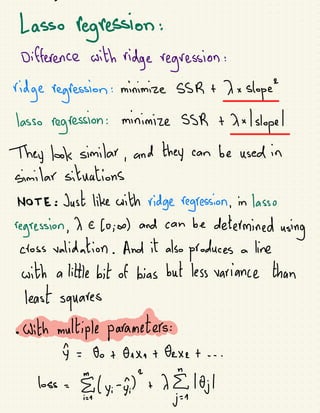 Lasso regression:
Difference with ridge regression:
ridge regression: minimize SSR + λ × slope²
lasso regression: minimize SSR + λ × |slope|
They look similar, and they can be used in
similar situations
NOTE: Just like with ridge regression, in lasso
regression, λ ∈ [0;∞) and can be determined using
cross validation. And it also produces a line
with a little bit of bias but less variance than
least squares
. With multiple parameters:
ŷ = θ₀ + θ₁x₁ + θ₂x₂ + ...
loss = Σᵢ₌₁ᵐ (yᵢ - ŷᵢ)² + λ Σⱼ₌₁ⁿ |θⱼ|